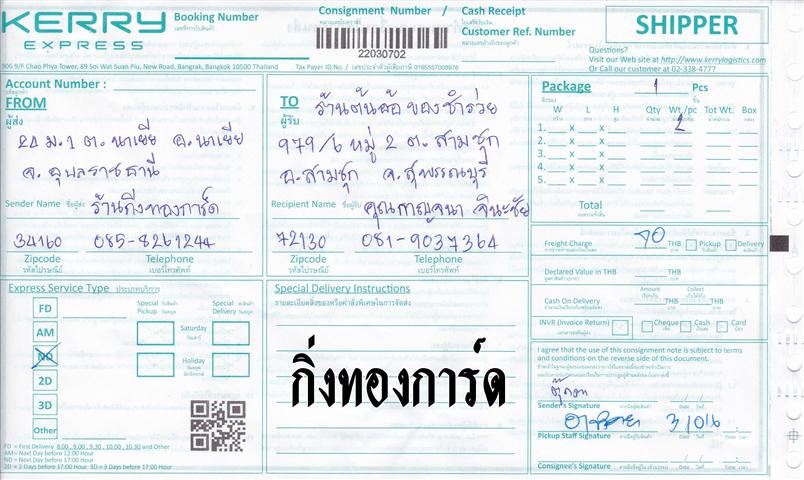 KERRY
EXPRESS
Booking Number
เลขที่การรับสินค้า
Consignment Number /
หมายเลขใบตราส่ง
22030702
Cash Receipt
ใบเสร็จรับเงิน
Customer Ref. Number
SHIPPER
Questions?
Visit our Web site at http://www.kerrylogistics.com
Or Call our customer at 02-338-4777
906 9/F Chao Phya Tower, 89 Soi Wat Suan Plu, New Road, Bangrak, Bangkok 10500 Thailand
Tax Payer ID.No. / เลขประจำตัวผู้เสียภาษี 0105557008976
Account Number :
FROM
ผู้ส่ง
20 ม.1 ต.นาเยีย อ.นาเยีย
จ.อุบลราชธานี
Sender Name ชื่อผู้ส่ง ร้านกิ่งทองการ์ด
34160 085-8261244
Zipcode Telephone
รหัสไปรษณีย์ เบอร์โทรศัพท์
TO
ผู้รับ
ร้านต้นอ้อของชำร่วย
979/6 หมู่ 2 ต.สามชุก
อ.สามชุก จ.สุพรรณบุรี
Recipient Name ชื่อผู้รับ คุณกาญจนา จินะชัย
72130 081-9037364
Zipcode Telephone
รหัสไปรษณีย์ เบอร์โทรศัพท์
Package 1 Pcs
W L H Qty Wt./pc Tot Wt. Box
1. x x 2
2. x x
3. x x
4. x x
5. x x
Total
Freight Charge 70 THB Pickup Delivery
Declared Value in THB THB
Amount Collect
Cash On Delivery THB THB
INVR (Invoice Return) Cheque Cash Card
I agree that the use of this consignment note is subject to terms
and conditions on the reverse side of this document.
Sender's Signature
Date
3/016
Pickup Staff Signature
Date Time
Consignee's Signature
Date Time
Express Service Type ประเภทบริการ
Special Pickup
Special Delivery
FD
AM
ND
2D
3D
Other
Saturday
วันเสาร์
Holiday
วันหยุด
FD = First Delivery 8.00 , 9.00 , 9.30 , 10.00 , 10.30 and Other
AM = Next Day before 12:00 Hour
ND = Next Day before 17:00 Hour
2D = 2 Days before 17:00 Hour 3D = 3 Days before 17:00 Hour
Special Delivery Instructions
รายละเอียดสิ่งของหรือคำสั่งพิเศษในการจัดส่ง
กิ่งทองการ์ด